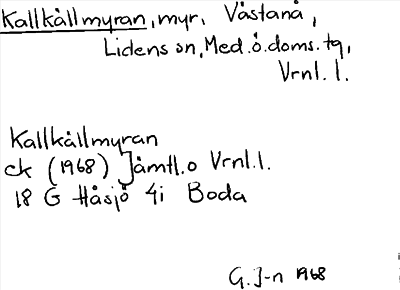 Kallkällmyran, myr, Västanå,
Lidens sn, Med. ö. doms. tg,
Vrnl. l.
Kallkällmyran
ek (1968) Jämtl. o Vrnl. l.
18 G Håsjö 4i Boda
G. J-n 1968